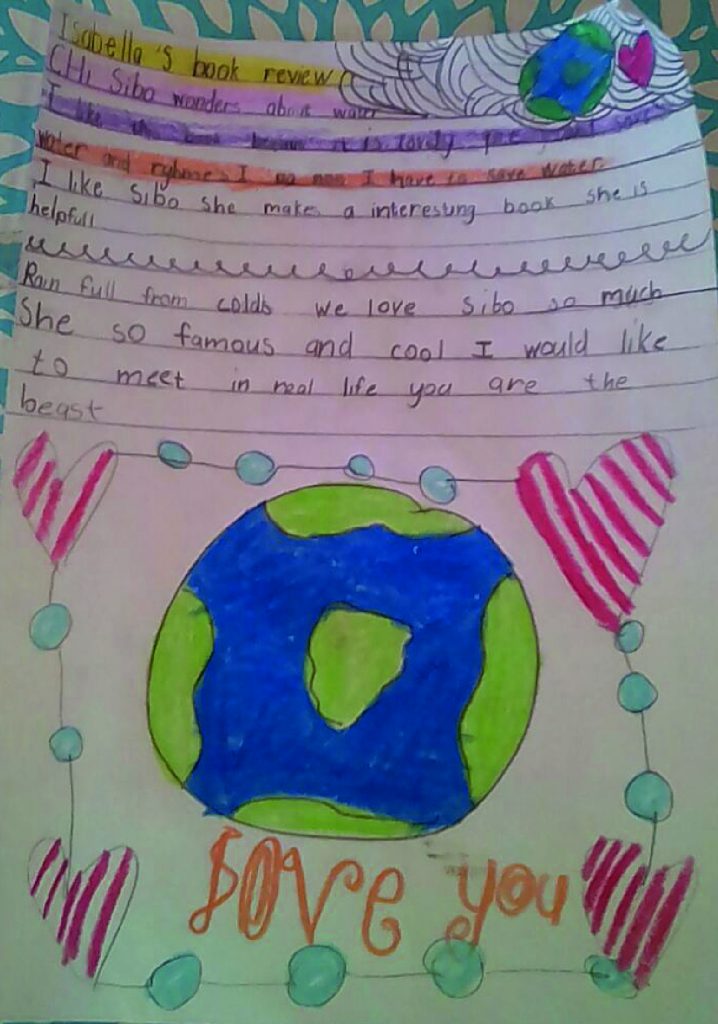 Isabella's book review
CHi Sibo wonders about water
I like book it is lovely
water and I I have to save water.
I like Sibo she makes a interesting book she is
helpfull
Rain full from colds we love Sibo so much
She so famous and cool I would like
to meet in real life you are the
beast
Love you